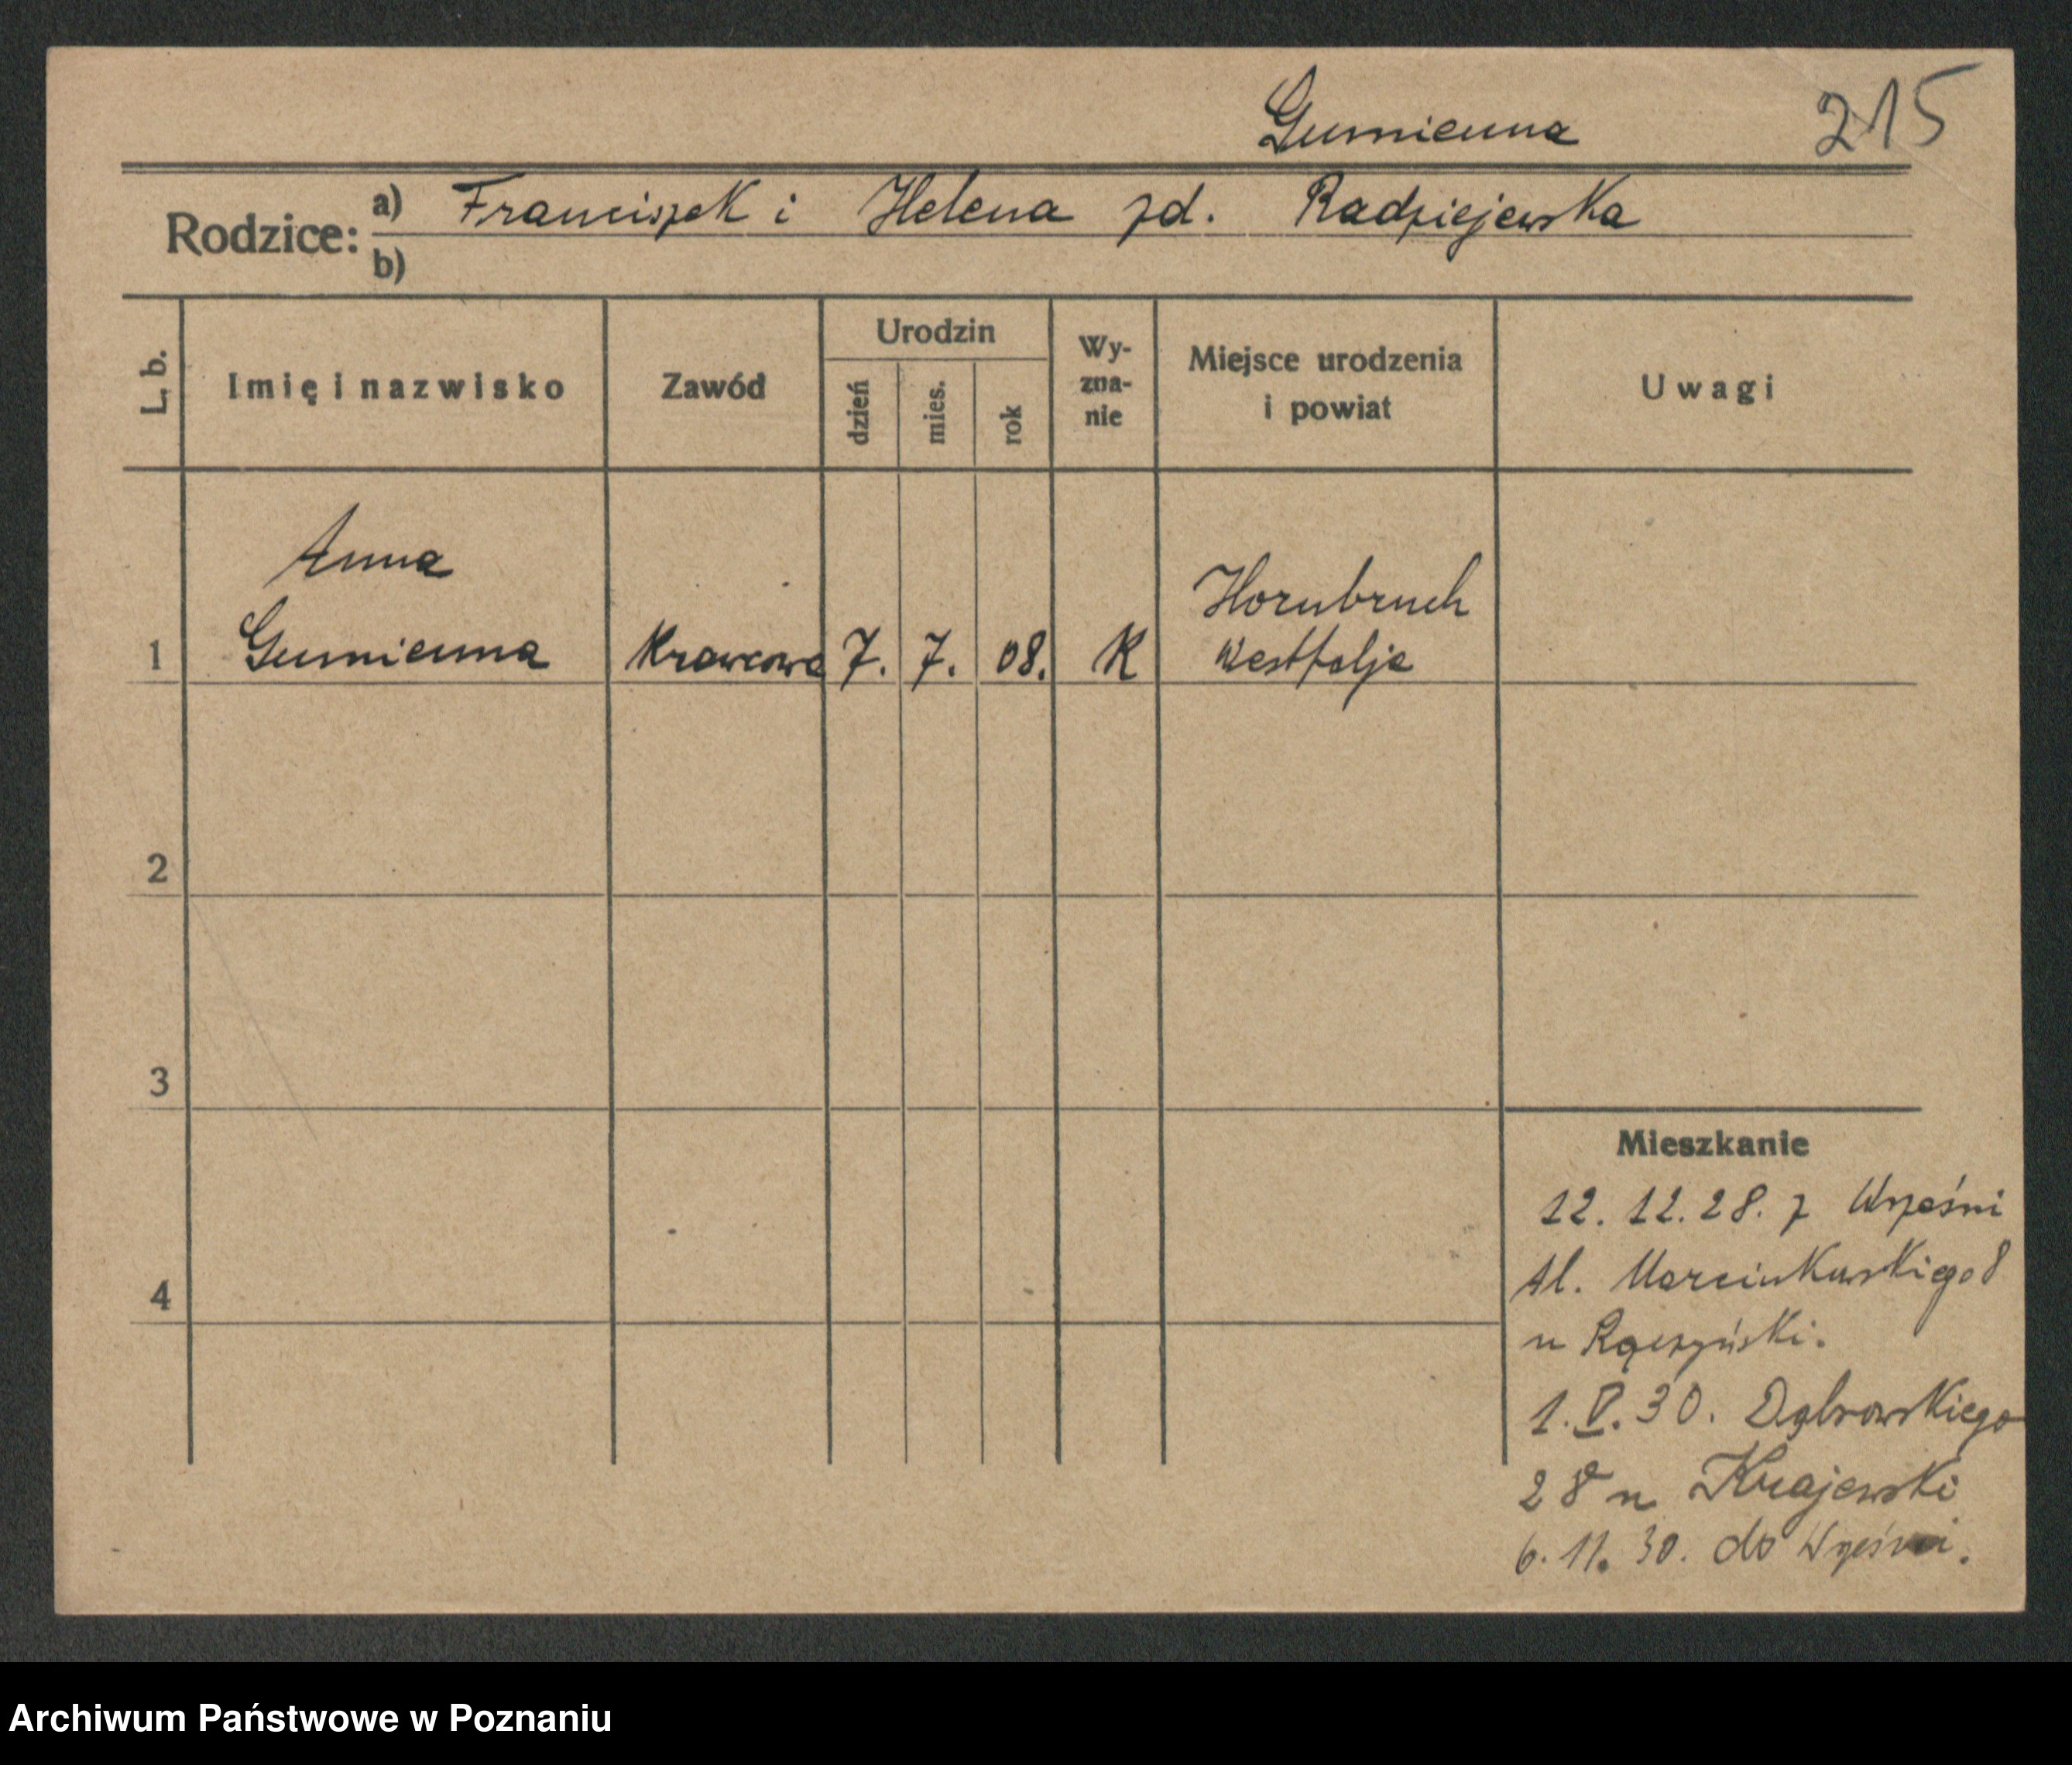 Gumienna 215
Rodzice: a) Franciszek i Helena zd. Radziejewska
b)
L. b. Imię i nazwisko Zawód Urodzin dzień mies. rok Wy-zna-nie Miejsce urodzenia i powiat Uwagi
Anna
1 Gumienna Krawcowa 7. 7. 08. K Hornbruch Westfalja
2
3
4
Mieszkanie
12. 12. 28. z Wrześni
Al. Marcinkowskiego 8
u Rączyński.
1. V. 30. Dąbrowskiego
28 u Krajewski
6. 11. 30. do Wrześni.
Archiwum Państwowe w Poznaniu